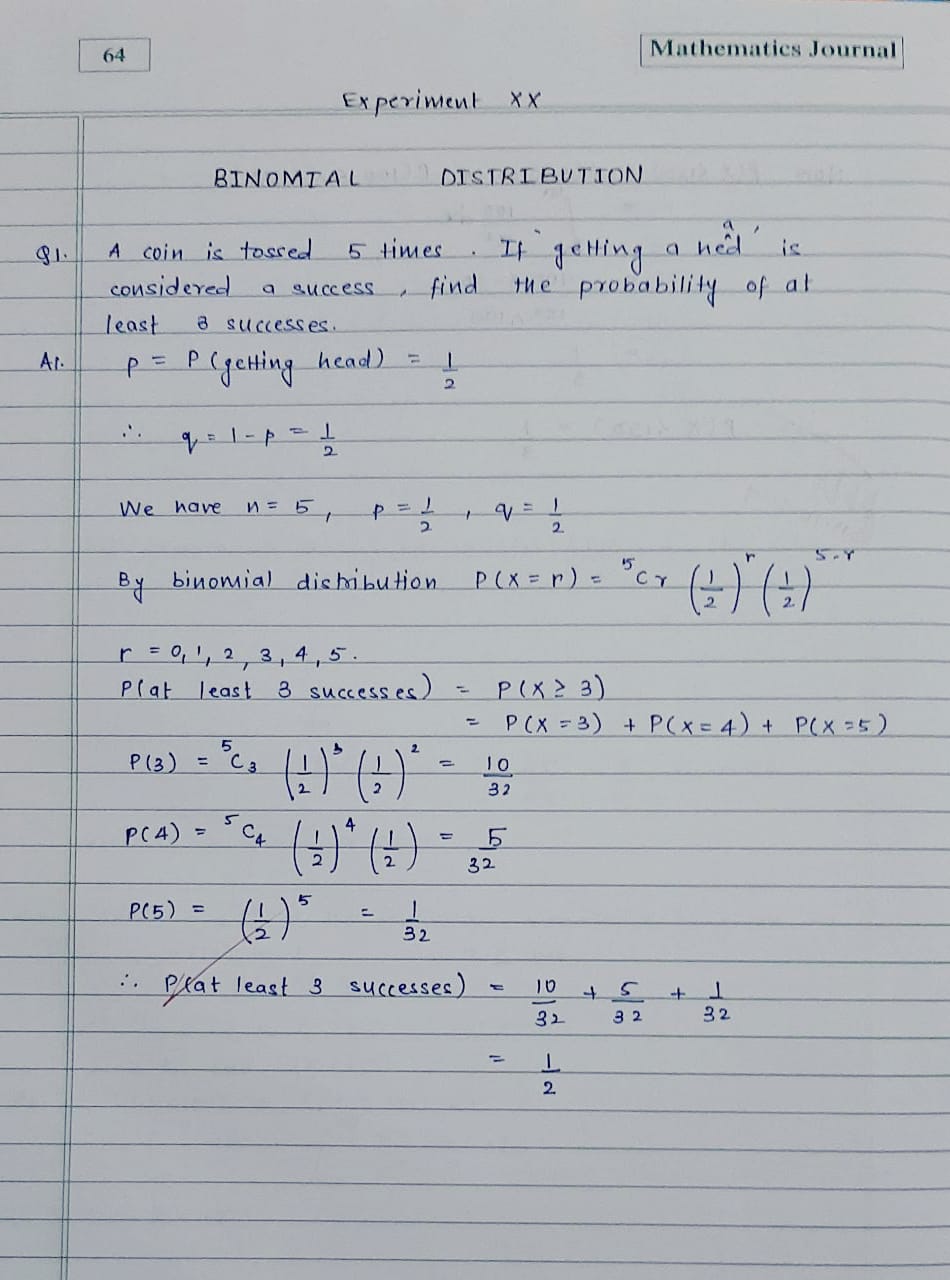 64
Mathematics Journal
Experiment XX
BINOMIAL DISTRIBUTION
Q1. A coin is tossed 5 times. If 'getting a head' is
considered a success, find the probability of at
least 3 successes.
A1. p = P(getting head) = 1/2
∴ q = 1-p = 1/2
We have n = 5, p = 1/2, q = 1/2
By binomial distribution P(X = r) = ⁵Cr (1/2)^r (1/2)^(5-r)
r = 0, 1, 2, 3, 4, 5.
P(at least 3 successes) = P(X ≥ 3)
= P(X = 3) + P(X = 4) + P(X = 5)
P(3) = ⁵C₃ (1/2)³ (1/2)² = 10/32
P(4) = ⁵C₄ (1/2)⁴ (1/2) = 5/32
P(5) = (1/2)⁵ = 1/32
∴ P(at least 3 successes) = 10/32 + 5/32 + 1/32
= 1/2